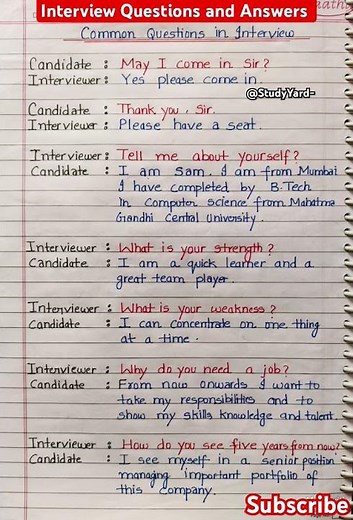 Interview Questions and Answers
Common Questions in Interview
Candidate : May I come in Sir?
Interviewer : Yes please come in.
@StudyYard-
Candidate : Thank you, Sir.
Interviewer : Please have a seat.
Interviewer : Tell me about yourself?
Candidate : I am Sam. I am from Mumbai
I have completed by B.Tech
in Computer science from Mahatma
Gandhi Central University.
Interviewer : What is your strength?
Candidate : I am a quick learner and a
great team player.
Interviewer : What is your weakness?
Candidate : I can concentrate on one thing
at a time.
Interviewer : Why do you need a job?
Candidate : From now onwards I want to
take my responsibilities and to
show my skills knowledge and talent.
Interviewer : How do you see five years from now?
Candidate : I see myself in a senior position
managing important portfolio of
this company.
Subscribe